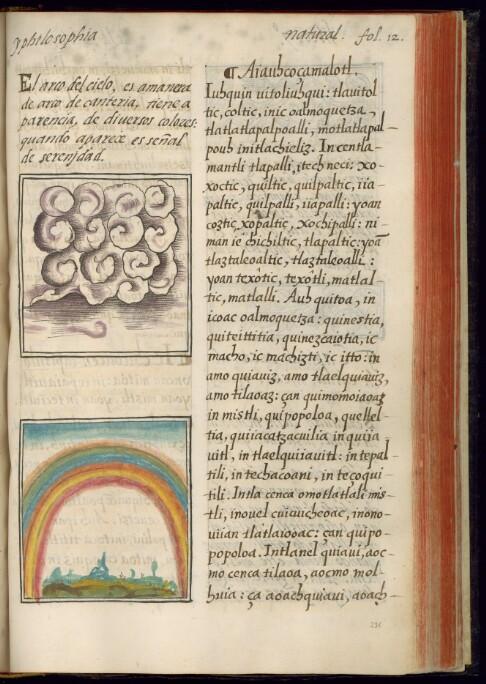 yphilosophia
natural. fol. 12.
El arco del cielo, es a manera
de arco de canteria, tiene a
parencia, de diversos colores:
quando aparece es señal
de serenidad.
¶ Aiauhcoçamalotl.
Iuhquin vitoliuhqui: tlavitol
tic, coltic, inic oalmoquetza,
tlatlatlapalpoalli, motlatlapal-
pouh initlachieliz. In centla-
mantli tlapalli, itech neci: xo-
xoctic, quiltic, quilpaltic, iia-
paltic, quilpalli, iiapalli: yoan
coztic, xopaltic, xochipalli: ni
man ie chichiltic, tlapaltic: yoã
tlaztaleoaltic, tlaztaleoalli:
yoan texòtic, texòtli, matlal-
tic, matlalli. Auh quitoa, in
icoac oalmoquetza: quinestia,
quiteittitia, quinezcaiotia, ic
macho, ic machizti, ic itto: in
amo quiauiz, amo tlaelquiauiz,
amo tilaoaz: çan quimomoiaoaz
in mistli, quipopoloa, quellel-
tia, quiiacatzacuilia in quija
uitl, in tlaelquiiauitl: in tepal
tili, in techacoani, in tecoqui
tili. Intla cenca omotlatlali mis-
tli, inouel cuicuicheoac, inono-
uiian tlatlaiooac: çan quipo-
popoloa. Intlanel quiaui, aoc-
mo cenca tilaoa, aocmo mol-
huia: ça aoachquiaui, aoach-